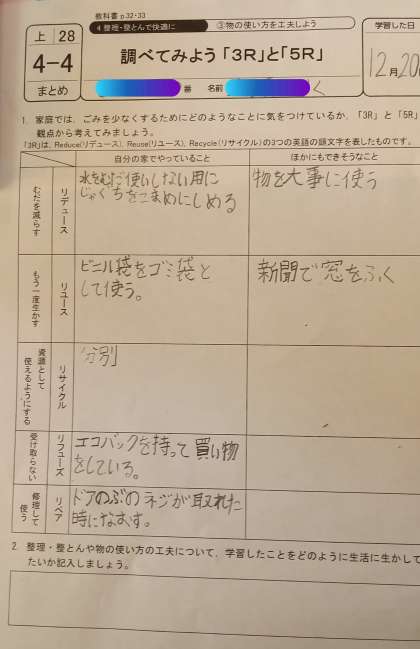 教科書 p.32・33
上 28
4-4
まとめ
4 整理・整とんで快適に
③物の使い方を工夫しよう
調べてみよう「3R」と「5R」
番 名前 く
学習した日
12月20
1. 家庭では、ごみを少なくするためにどのようなことに気をつけているか、「3R」と「5R」
観点から考えてみましょう。
「3R」は、Reduce(リデュース)、Reuse(リユース)、Recycle(リサイクル)の3つの英語の頭文字を表したものです。
自分の家でやっていること
ほかにもできそうなこと
むだを減らす
リデュース
水をむだ使いしない用に
じゃぐちをこまめにしめる
物を大事に使う
もう一度生かす
リユース
ビニル袋をゴミ袋と
して使う。
新聞で窓をふく
資源として
使えるようにする
リサイクル
分別
受け取らない
リフューズ
エコバックを持って買い物
をしている。
修理して
使う
リペア
ドアのぶのネジが取れた
時になおす。
2. 整理・整とんや物の使い方の工夫について、学習したことをどのように生活に生かして
たいか記入しましょう。